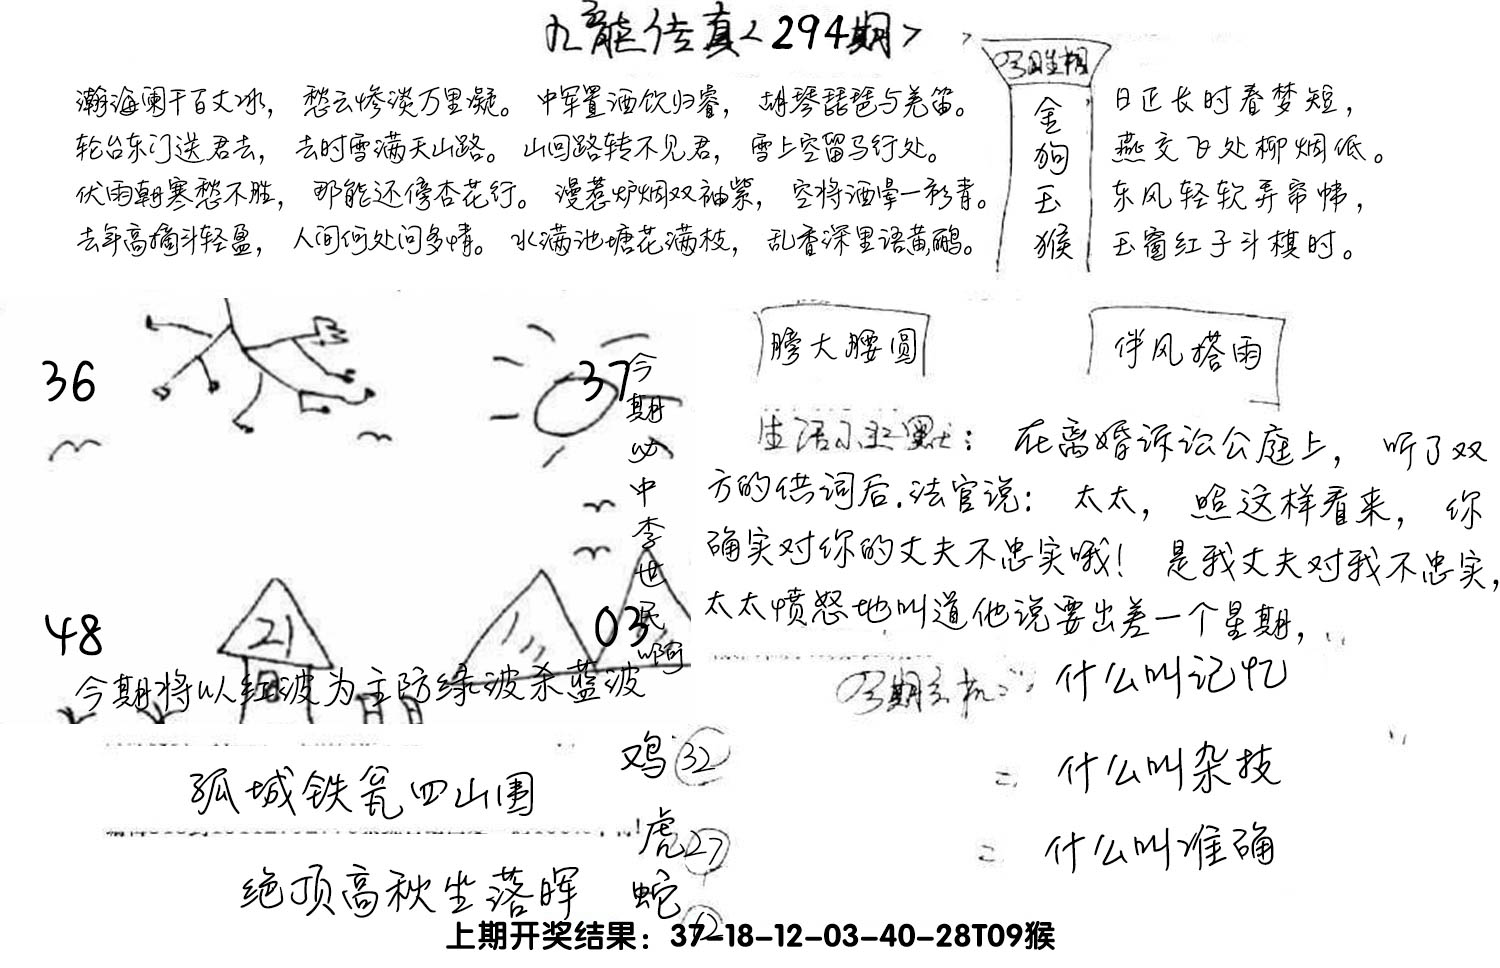 九龙传真<294期>
瀚海阑干百丈冰，愁云惨淡万里凝。中军置酒饮归睿，胡琴琵琶与羌笛。
轮台东门送君去，去时雪满天山路。山回路转不见君，雪上空留马行处。
伏雨朝寒愁不胜，那能还傍杏花行。漫惹炉烟双袖紫，空将酒晕一衫青。
去年高摘斗轻盈，人间何处问多情。水满池塘花满枝，乱香深里语黄鹂。
今期生相
金
狗
玉
猴
日正长时春梦短，
燕交飞处柳烟低。
东风轻软弄帘帏，
玉窗红子斗棋时。
36
37
48
03
21
今期必中李世民啊
今期将以红波为主防绿波杀蓝波
孤城铁瓮四山围
绝顶高秋坐落晖
鸡32
虎27
蛇
膀大腰圆
伴风搭雨
生活小幽默：在离婚诉讼公庭上，听了双
方的供词后.法官说：太太，照这样看来，你
确实对你的丈夫不忠实哦！是我丈夫对我不忠实，
太太愤怒地叫道他说要出差一个星期，
今期玄机：什么叫记忆
二 什么叫杂技
二 什么叫准确
上期开奖结果：37-18-12-03-40-28T09猴